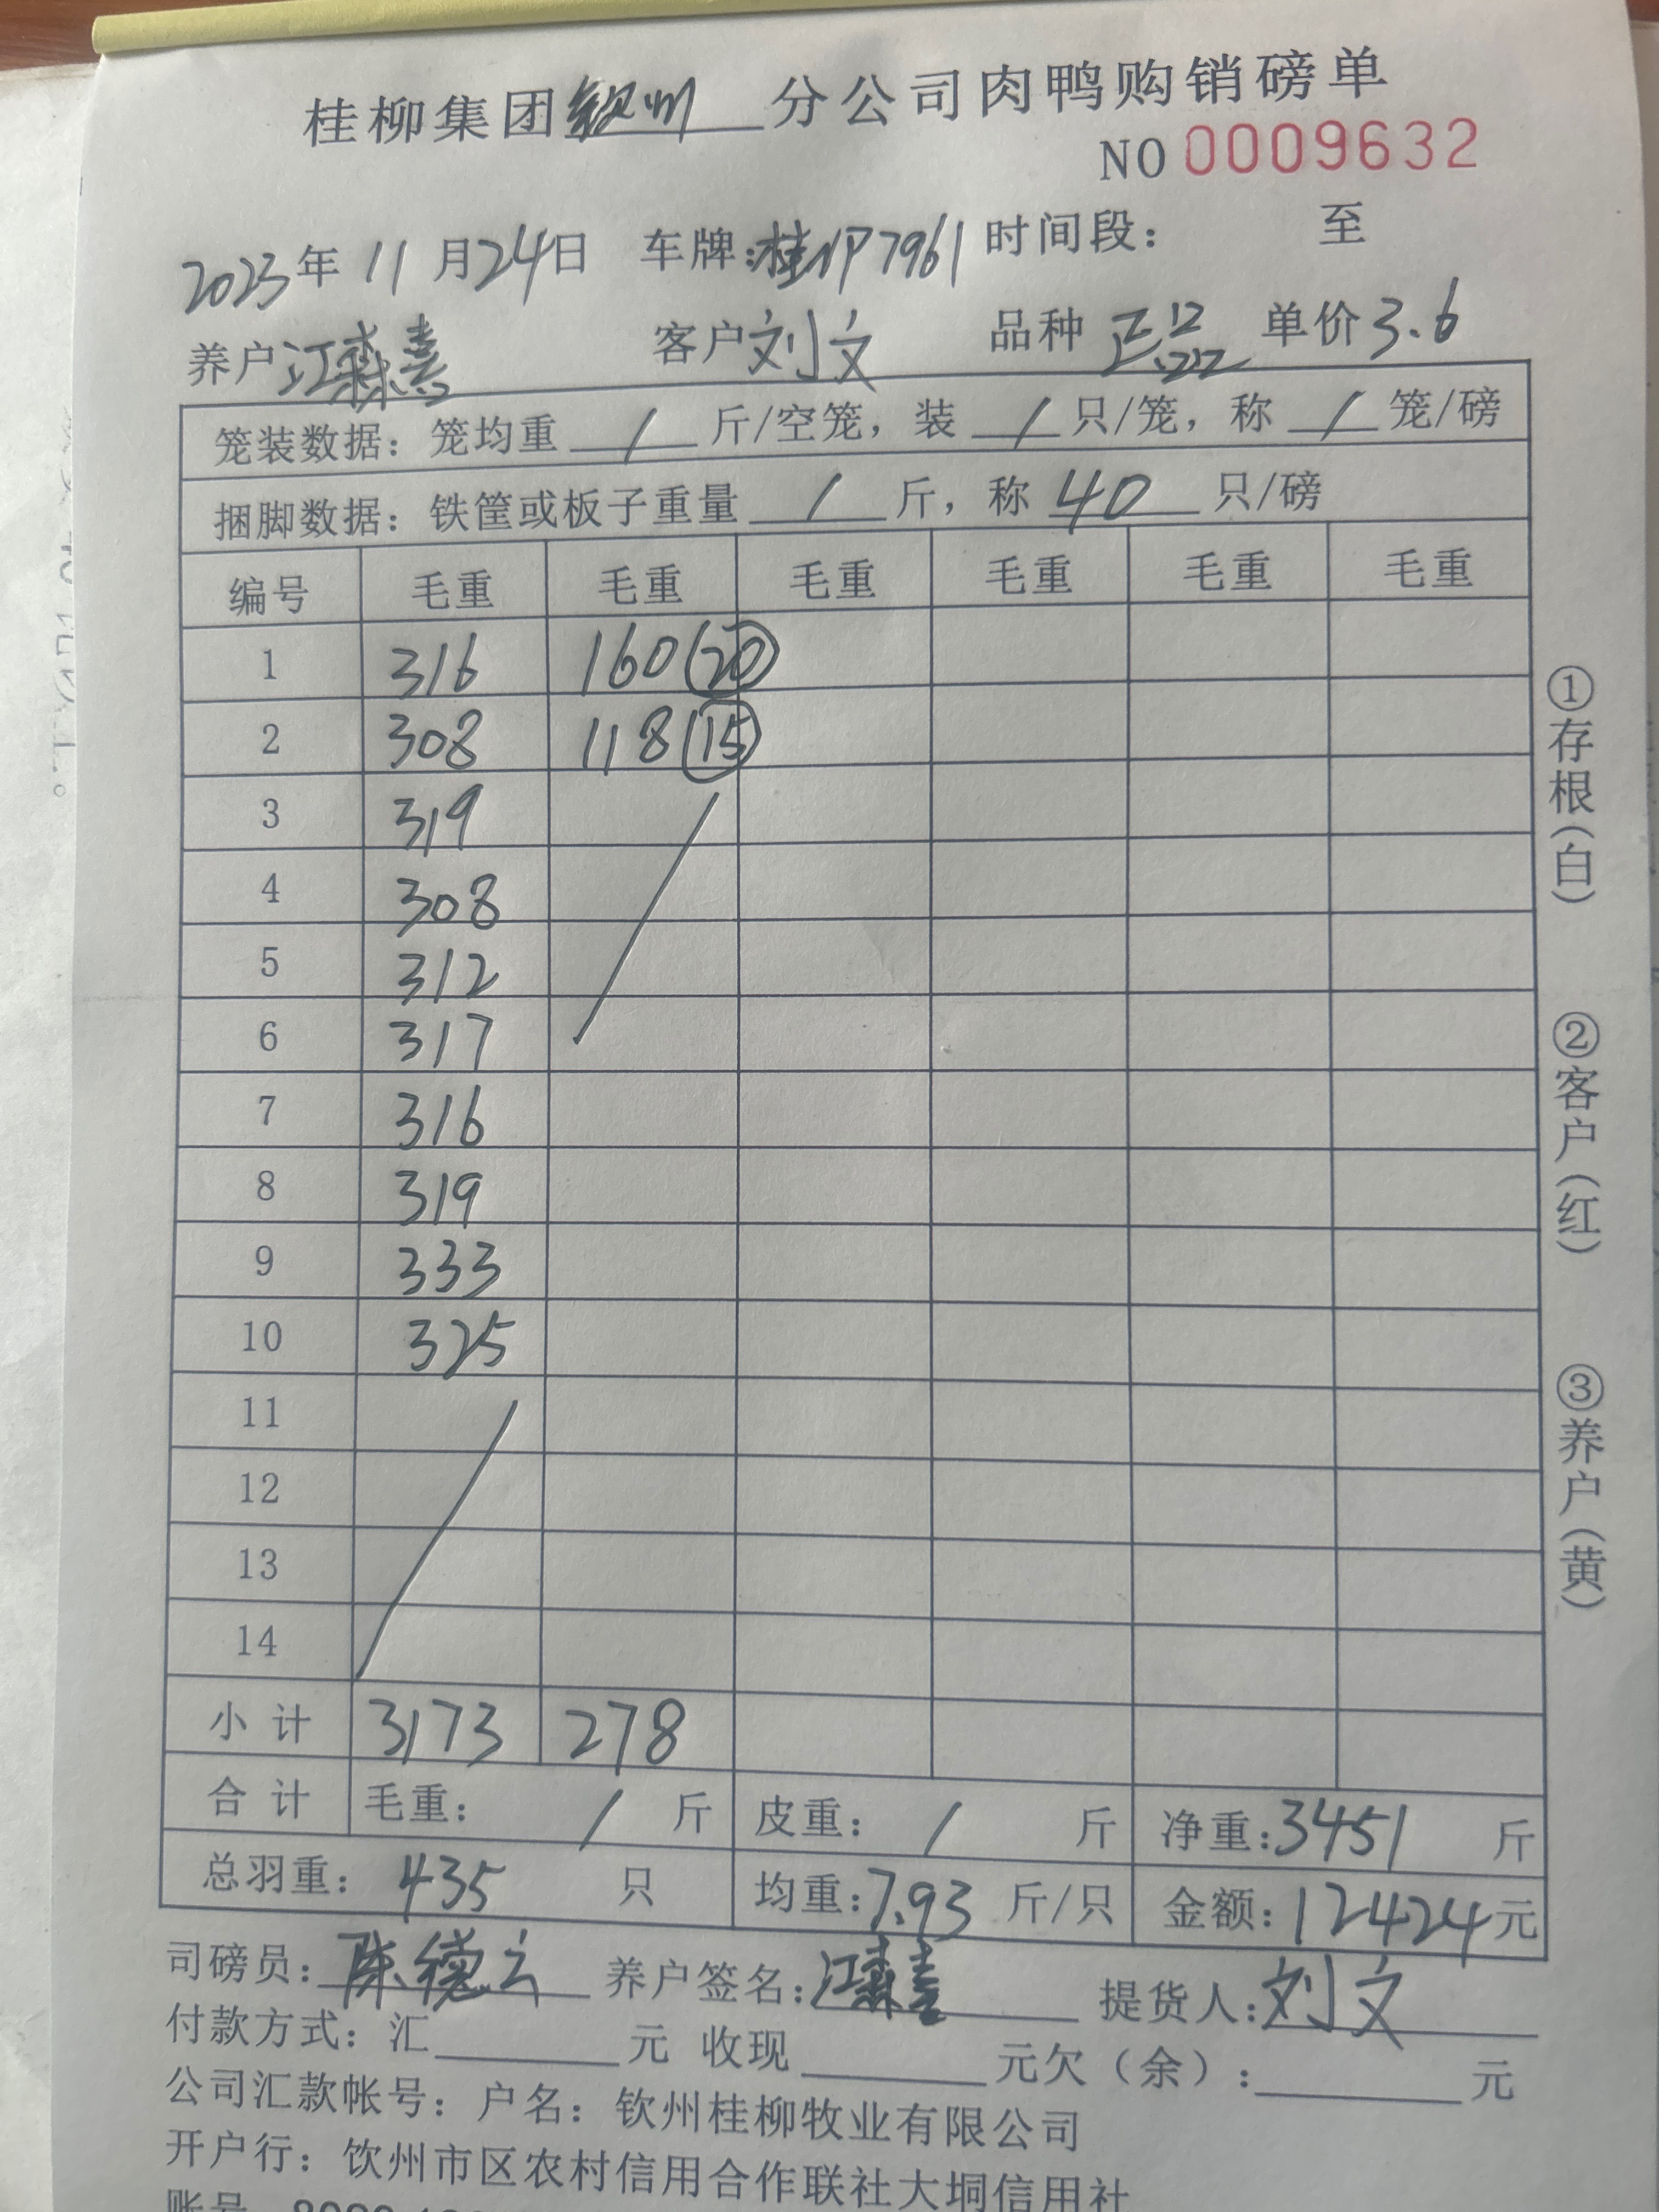 桂柳集团钦州分公司肉鸭购销磅单
NO 0009632
2023年11月24日 车牌:桂 P7961 时间段: 至
养户江森 客户刘文 品种 正品 单价3.6
笼装数据: 笼均重 / 斤/空笼, 装 / 只/笼, 称 / 笼/磅
捆脚数据: 铁筐或板子重量 / 斤, 称 40 只/磅
编号 毛重 毛重 毛重 毛重 毛重 毛重
1 316 160(20)
2 308 118(15)
3 319
4 308
5 312
6 317
7 316
8 319
9 333
10 325
11
12
13
14
小计 3173 278
合计 毛重: / 斤 皮重: / 斤 净重:3451 斤
总羽重: 435 只 均重:7.93 斤/只 金额:12424元
司磅员: 陈德云 养户签名:江森 提货人:刘文
付款方式: 汇 元 收现 元欠(余): 元
公司汇款帐号: 户名: 钦州桂柳牧业有限公司
开户行: 钦州市区农村信用合作联社大垌信用社
账号
①存根(白)
②客户(红)
③养户(黄)